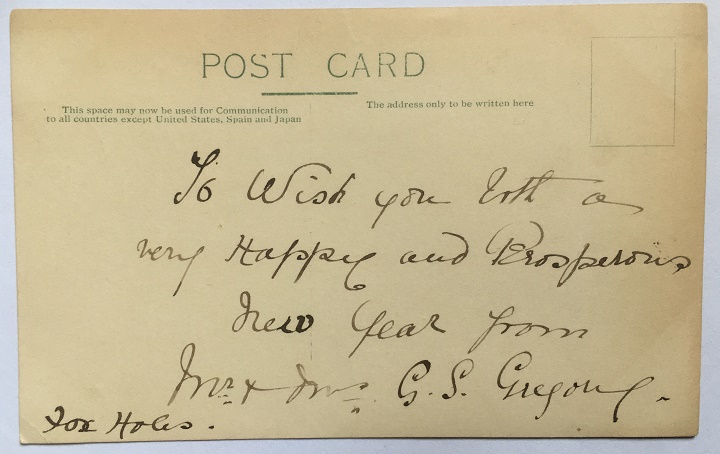 POST CARD
This space may now be used for Communication
to all countries except United States, Spain and Japan
The address only to be written here
To Wish you both a
very Happy and Prosperous
New Year from
Mr & Mrs. G. S. Gregory.
Fox Holes.